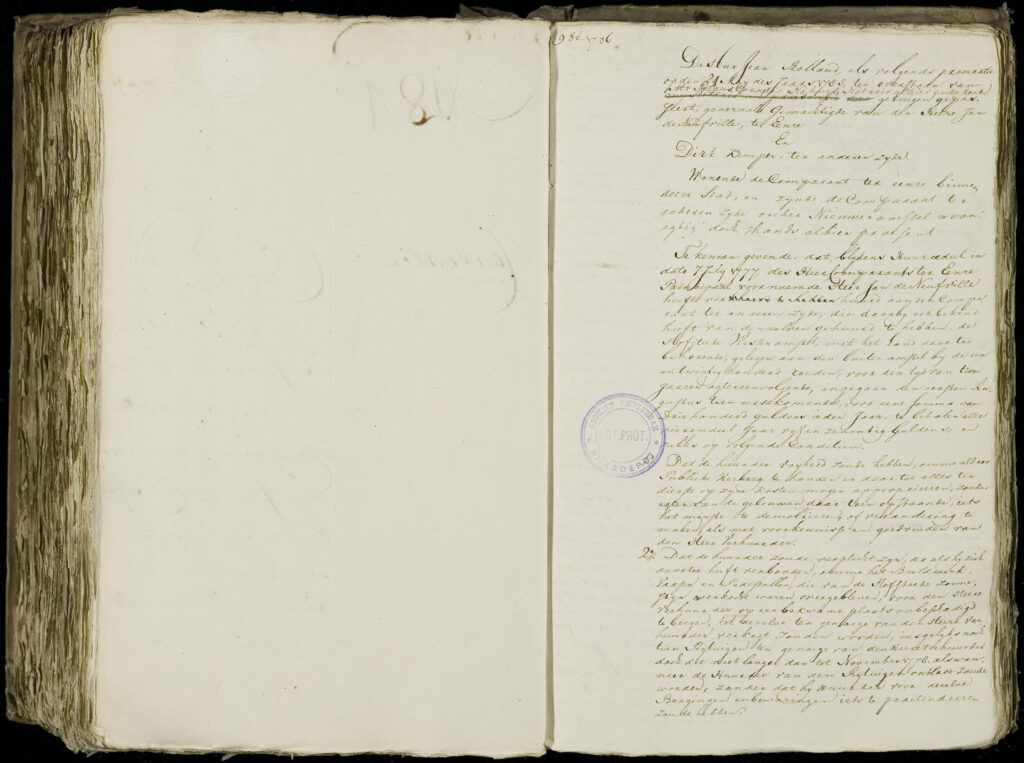 N 81
9 86. 1786
De Heer Jean Molland, als volgende procuratie
op den 24 May des Jaars 1785, ten overstaan van
Notaris alhier
getuigen gepas
generaale Gemachtigde van den Heere Jan
de Neufville, ter Eenre
En
Dirk Kemper, ter anderen zyde.
Wonende de Comparant ter eenre binnen
deeze Stad, en zynde de Comparant ter
anderen zyde onder Nieuwer amstel woon
agtig doch thands alhier present
Te kennen gevende: dat, blykens Huurcedul in
dato 7 July 1777 des Heer Comparants ter Eenre
Principaal voornoemde Heer Jan de Neufville
heeft verhuurd aan den Compa
rant ter anderen zyde, die daarby ook bekend
heeft van denzelven gehuurd te hebben, de
Hofstede Westeramstel, met het Land daar toe
behoorende, gelegen aan den buiten amstel by de een
en twintig honderd roeden, voor den tyd van tien
Jaaren agtereenvolgende, ingegaan den eersten Au
gustus toen eerstkomende, voor eene somma van
Drie honderd guldens ieder Jaar, te betalen alle
vierendeel Jaar vyf en zeventig Guldens, en
zulks op volgende Conditien.
Dat de huurder vryheid zoude hebben, omme aldaar
Publieke Herberg te houden en daar toe alles ten
dienste op zyne kosten mogen approprieeren, zonder
egter van de gebouwen daar toen opstaande, iets
het minste te demolieeren, of verandering te
maken, als met voorkennisse en goedvinden van
den Heer Verhuurder.
2o. Dat de huurder zoude verplicht zyn, zo als hy zich
daartoe heeft verbonden, omme het Beeldwerk,
Vaasen en Pedestallen, die van de Hofstede
zyn verkocht waren overgebleven, voor den Heere
Verhuurder op een bekwame plaats onbeschadigd
te bergen, tot dezelve ten genoege van den Heere Ver
huurder verkogt zouden worden, insgelyks nog
twee Rytuigen ten genoege van den Heer Verhuurder
doch dit niet langer dan tot November 1778. als wan
neer de Huurder van deze Rytuigen ontlast zoude
worden, zonder dat hy Huurder voor dezelve
Bergingen en bewaringen iets te praetendeeren
zoude hebben.
NOT. PROT.
RIJKSDEPOT